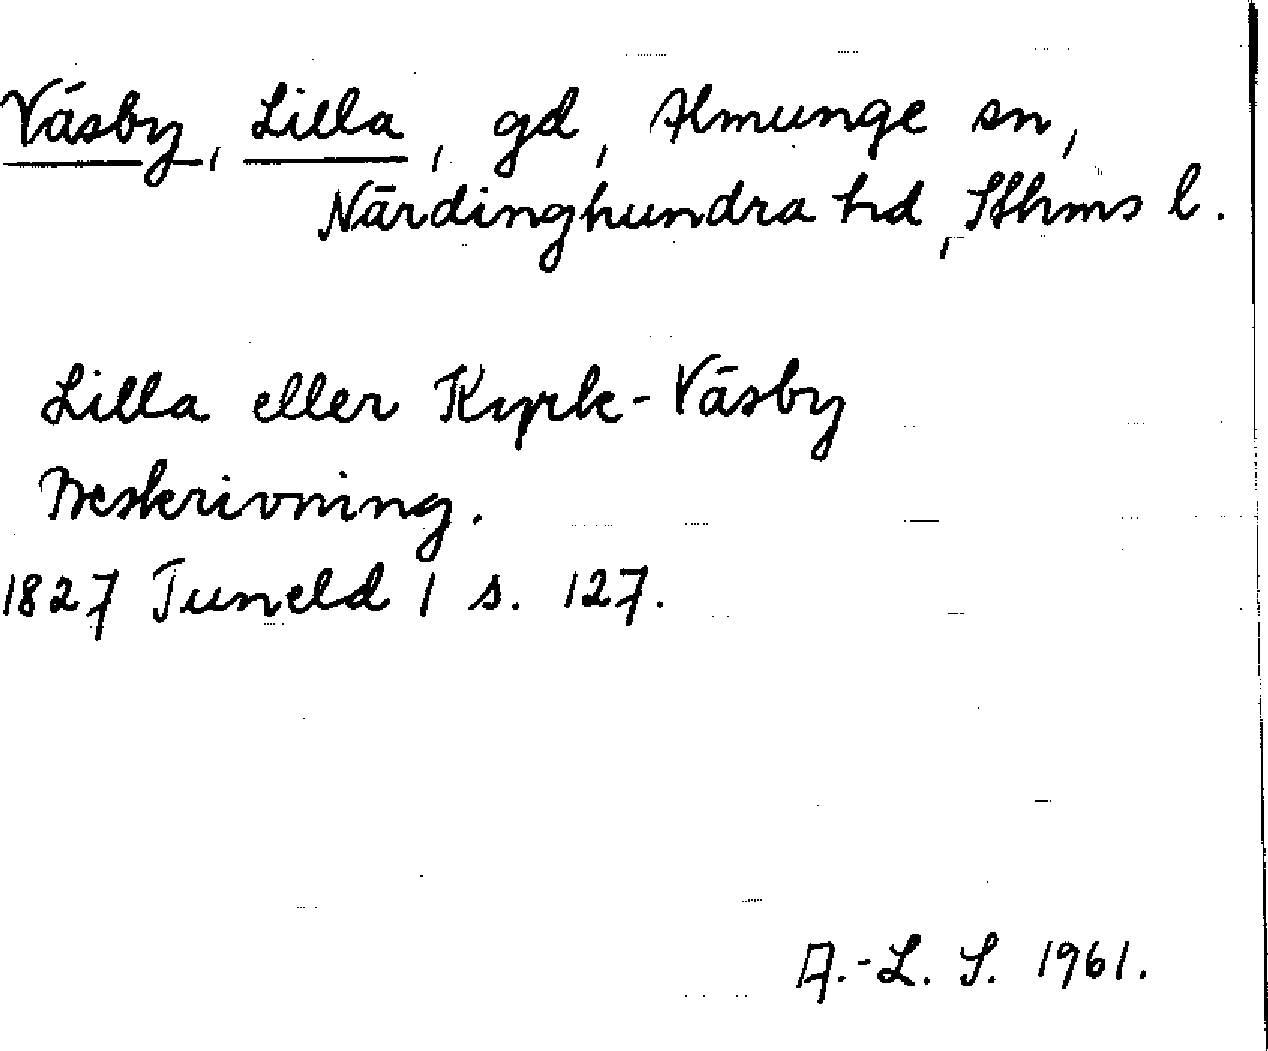 Väsby, Lilla, gd, Almunge sn,
Närdinghundra hd, Sthms l.
Lilla eller Kyrk-Väsby
Beskrivning.
1827 Tuneld 1 s. 127.
A.-L. S. 1961.